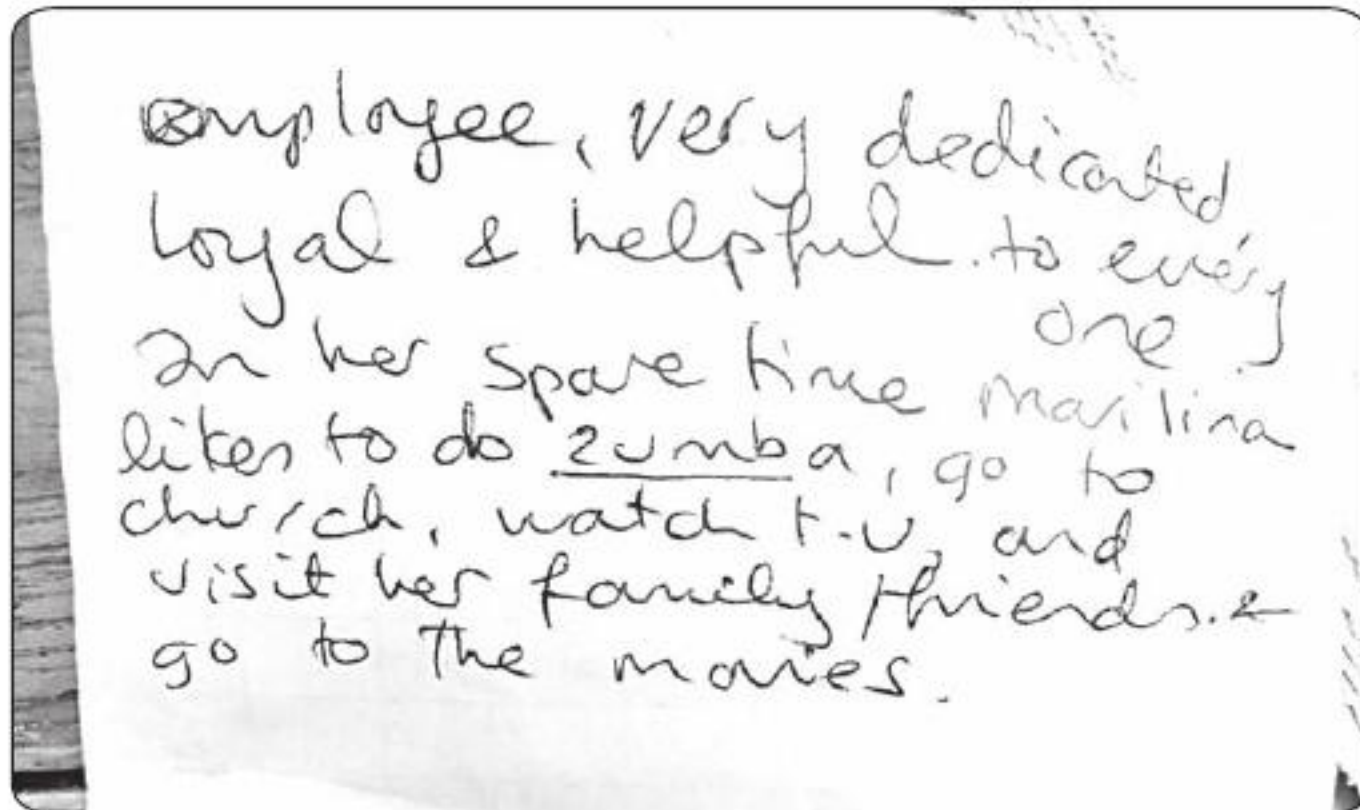 employee, very dedicated
loyal & helpful. to every
one
In her spare time Marilina
likes to do zumba, go to
church, watch t.v, and
visit her family friends. &
go to the movies.